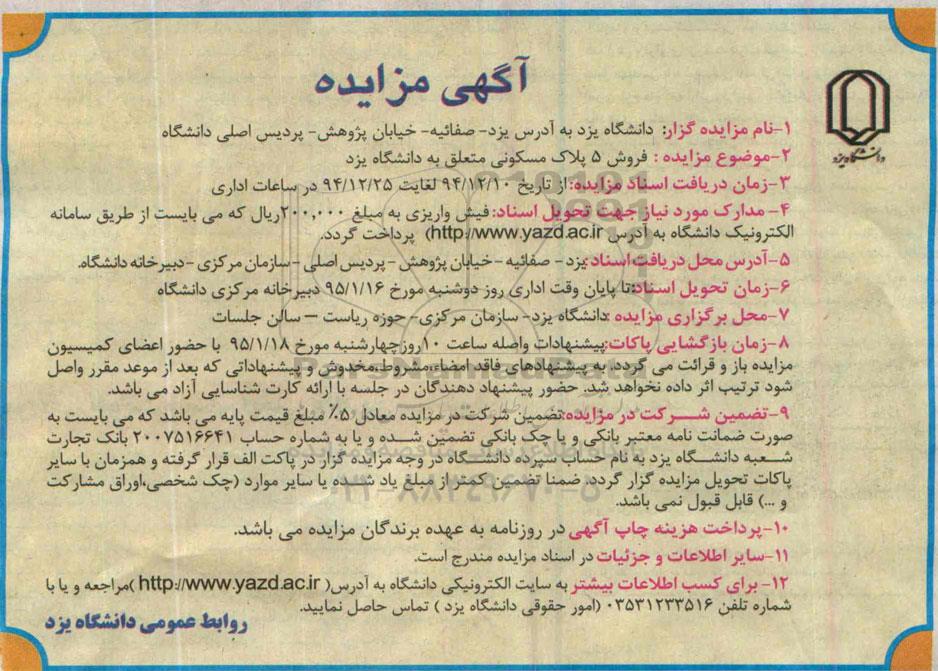 آگهی مزایده
دانشگاه یزد
۱-نام مزایده گزار: دانشگاه یزد به آدرس یزد- صفائیه- خیابان پژوهش- پردیس اصلی دانشگاه
۲-موضوع مزایده : فروش ۵ پلاک مسکونی متعلق به دانشگاه یزد
۳-زمان دریافت اسناد مزایده: از تاریخ ۹۴/۱۲/۱۰ لغایت ۹۴/۱۲/۲۵ در ساعات اداری
۴- مدارک مورد نیاز جهت تحویل اسناد: فیش واریزی به مبلغ ۲۰۰,۰۰۰ریال که می بایست از طریق سامانه
الکترونیک دانشگاه به آدرس http://www.yazd.ac.ir) پرداخت گردد.
۵-آدرس محل دریافت اسناد: یزد - صفائیه -خیابان پژوهش -پردیس اصلی -سازمان مرکزی -دبیرخانه دانشگاه.
۶-زمان تحویل اسناد: تا پایان وقت اداری روز دوشنبه مورخ ۹۵/۱/۱۶ دبیرخانه مرکزی دانشگاه
۷-محل برگزاری مزایده :دانشگاه یزد- سازمان مرکزی- حوزه ریاست – سالن جلسات
۸-زمان بازگشایی پاکات: پیشنهادات واصله ساعت ۱۰روزچهارشنبه مورخ ۹۵/۱/۱۸ با حضور اعضای کمیسیون
مزایده باز و قرائت می گردد، به پیشنهادهای فاقد امضاء،مشروط،مخدوش و پیشنهاداتی که بعد از موعد مقرر واصل
شود ترتیب اثر داده نخواهد شد. حضور پیشنهاد دهندگان در جلسه با ارائه کارت شناسایی آزاد می باشد.
۹-تضمین شـــرکت در مزایده:تضمین شرکت در مزایده معادل ۵٪ مبلغ قیمت پایه می باشد که می بایست به
صورت ضمانت نامه معتبر بانکی و یا چک بانکی تضمین شـــده و یا به شماره حساب ۲۰۰۷۵۱۶۶۴۱ بانک تجارت
شـــعبه دانشـــگاه یزد به نام حساب سپرده دانشـــگاه در وجه مزایده گزار در پاکت الف قرار گرفته و همزمان با سایر
پاکات تحویل مزایده گزار گردد. ضمنا تضمین کمتر از مبلغ یاد شـــده یا سایر موارد (چک شخصی،اوراق مشارکت
و ...) قابل قبول نمی باشد.
۱۰-پرداخت هزینه چاپ آگهی در روزنامه به عهده برندگان مزایده می باشد.
۱۱-سایر اطلاعات و جزئیات در اسناد مزایده مندرج است.
۱۲- برای کسب اطلاعات بیشتر به سایت الکترونیکی دانشگاه به آدرس( http://www.yazd.ac.ir )مراجعه و یا با
شماره تلفن ۰۳۵۳۱۲۳۳۵۱۶ (امور حقوقی دانشگاه یزد ) تماس حاصل نمایید.
روابط عمومی دانشگاه یزد